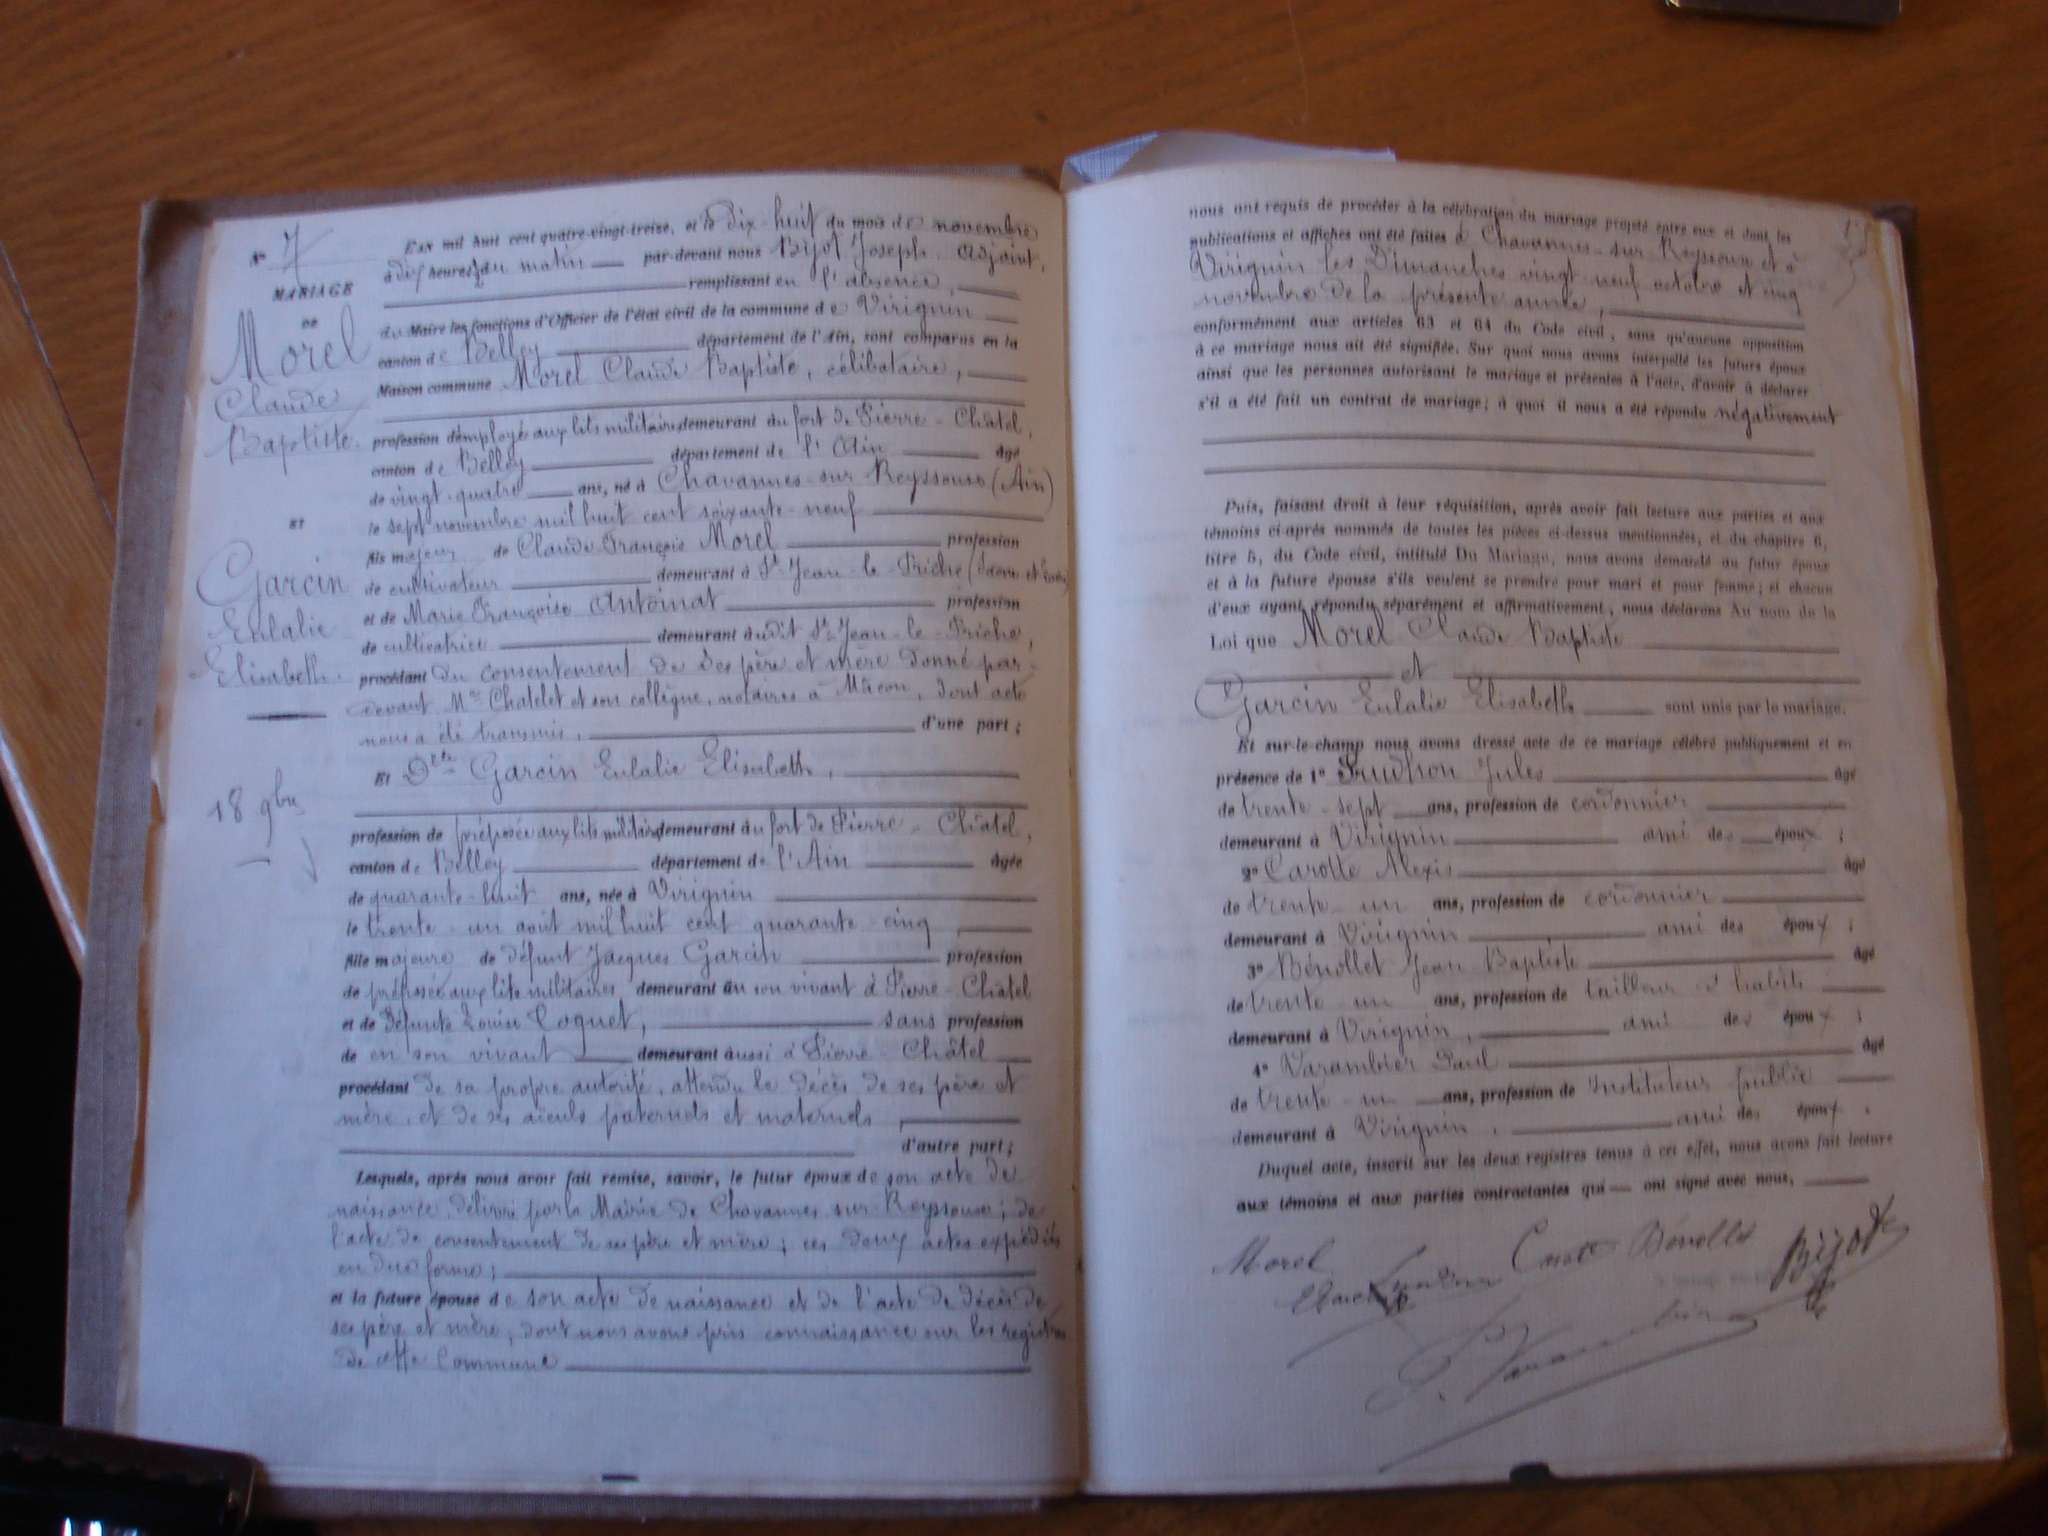 N° 7
MARIAGE
DE
Morel
Claude
Baptiste.
ET
Garcin
Eulalie
Elisabeth.
18 9bre
L'an mil huit cent quatre-vingt-treize, et le dix-huit du mois de novembre
à dix heures du matin par-devant nous Bijot Joseph, Adjoint,
remplissant en l'absence,
du Maire les fonctions d'Officier de l'état civil de la commune de Virignin
canton de Belley département de l'Ain, sont comparus en la
Maison commune Morel Claude Baptiste, célibataire,
profession d'employé aux lits militaires demeurant au fort de Pierre-Châtel,
canton de Belley département de l'Ain âgé
de vingt-quatre ans, né à Chavannes-sur Reyssouse (Ain)
le sept novembre mil huit cent soixante-neuf
fils majeur de Claude François Morel profession
de cultivateur demeurant à St-Jean-le-Priche (Saône et Loire)
et de Marie Françoise Antoinat profession
de cultivatrice demeurant audit St-Jean-le-Priche,
procédant du consentement de ses père et mère donné par-
devant Me Chatelet et son collègue, notaires à Mâcon, dont acte
nous a été transmis, d'une part;
Et Dlle Garcin Eulalie Elisabeth,
profession de préposée aux lits militaires demeurant au fort de Pierre-Châtel,
canton de Belley département de l'Ain âgée
de quarante-huit ans, née à Virignin
le trente-un août mil huit cent quarante-cinq,
fille majeure de défunt Jacques Garcin profession
de préposé aux lits militaires demeurant en son vivant à Pierre-Châtel
et de défunte Louise Coquet, sans profession
de en son vivant demeurant aussi à Pierre-Châtel
procédant de sa propre autorité, attendu le décès de ses père et
mère, et de ses aïeuls paternels et maternels,
d'autre part;
Lesquels, après nous avoir fait remise, savoir, le futur époux de son acte de
naissance délivré par la Mairie de Chavannes-sur-Reyssouse; de
l'acte de consentement de ses père et mère; ces deux actes expédiés
en due forme;
et la future épouse de son acte de naissance et de l'acte de décès de
ses père et mère, dont nous avons pris connaissance sur les registres
de cette commune
nous ont requis de procéder à la célébration du mariage projeté entre eux et dont les
publications et affiches ont été faites à Chavannes-sur-Reyssouse et à
Virignin les Dimanches vingt-neuf octobre et cinq
novembre de la présente année,
conformément aux articles 63 et 64 du Code civil, sans qu'aucune opposition
à ce mariage nous ait été signifiée. Sur quoi nous avons interpellé les futurs époux
ainsi que les personnes autorisant le mariage et présentes à l'acte, d'avoir à déclarer
s'il a été fait un contrat de mariage; à quoi il nous a été répondu négativement
Puis, faisant droit à leur réquisition, après avoir fait lecture aux parties et aux
témoins ci-après nommés de toutes les pièces ci-dessus mentionnées, et du chapitre 6,
titre 5, du Code civil, intitulé Du Mariage, nous avons demandé au futur époux
et à la future épouse s'ils veulent se prendre pour mari et pour femme; et chacun
d'eux ayant répondu séparément et affirmativement, nous déclarons Au nom de la
Loi que Morel Claude Baptiste
et
Garcin Eulalie Elisabeth sont unis par le mariage.
Et sur-le-champ nous avons dressé acte de ce mariage célébré publiquement et en
présence de 1° Prudhon Jules âgé
de trente-sept ans, profession de cordonnier
demeurant à Virignin ami des époux;
2° Carotte Alexis âgé
de trente-un ans, profession de cordonnier
demeurant à Virignin ami des époux;
3° Bénollet Jean Baptiste âgé
de trente-un ans, profession de tailleur d'habits
demeurant à Virignin, ami des époux;
4° Varambier Paul âgé
de trente-un ans, profession de Instituteur public
demeurant à Virignin, ami des époux.
Duquel acte, inscrit sur les deux registres tenus à cet effet, nous avons fait lecture
aux témoins et aux parties contractantes qui ont signé avec nous,
Morel
Bijot